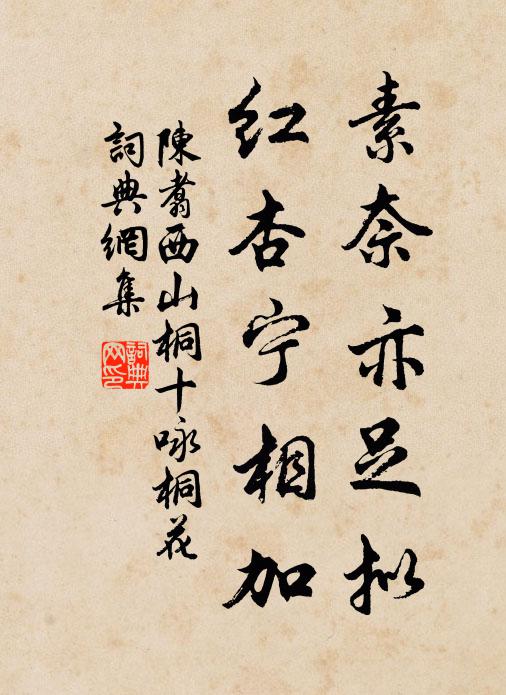 素奈亦足拟
红杏宁相加
陳翥西山桐十咏桐花
詞典網集
詞典
网印